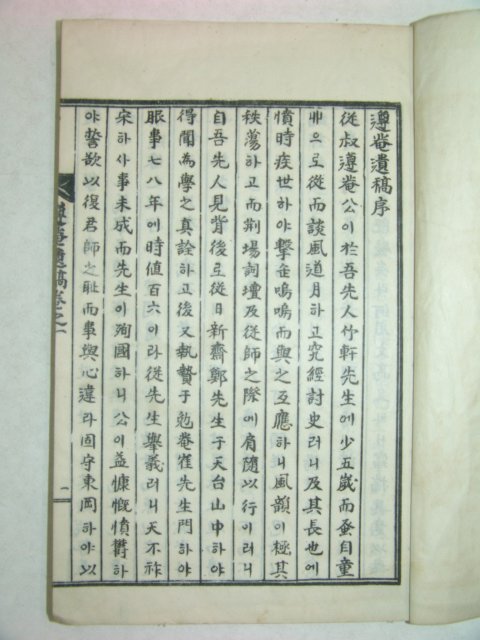 遵菴遺稿序
從叔遵菴公이於吾先人竹軒先生에少五歲而蚤自童
丱으로從而談風道月하고究經討史러니及其長也에
憤時疾世하야擊缶嗚嗚而與之互應하니風韻이極其
秩蕩하고而荊場詞壇及從師之際에肩隨以行이러니
自吾先人見背後로從日新齋鄭先生于天台山中하야
得聞為學之真詮하고後又執贄于勉菴崔先生門하야
眼事七八年에時値百六이라從先生擧義러니天不祚
宋하사事未成而先生이殉國하니公이益慷慨憤鬱하
야誓欲以復君師之耻而事與心違라固守東岡하야以
遵菴遺稿卷之一
一